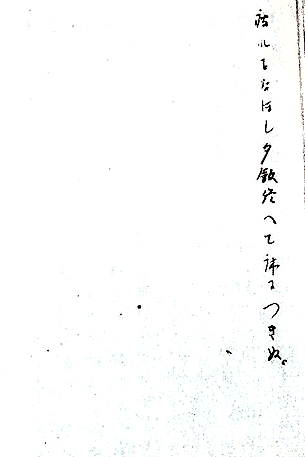 ルもなほし夕飯終へて床につきぬ。